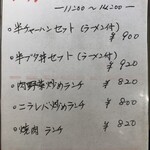 —11:00〜14:00—
・半チャーハンセット(ラーメン付)
¥900
・半ブタ丼セット(ラーメン付)
¥920
・肉野菜炒めランチ
¥820
・ニラレバ炒めランチ
¥800
・焼肉ランチ
¥820